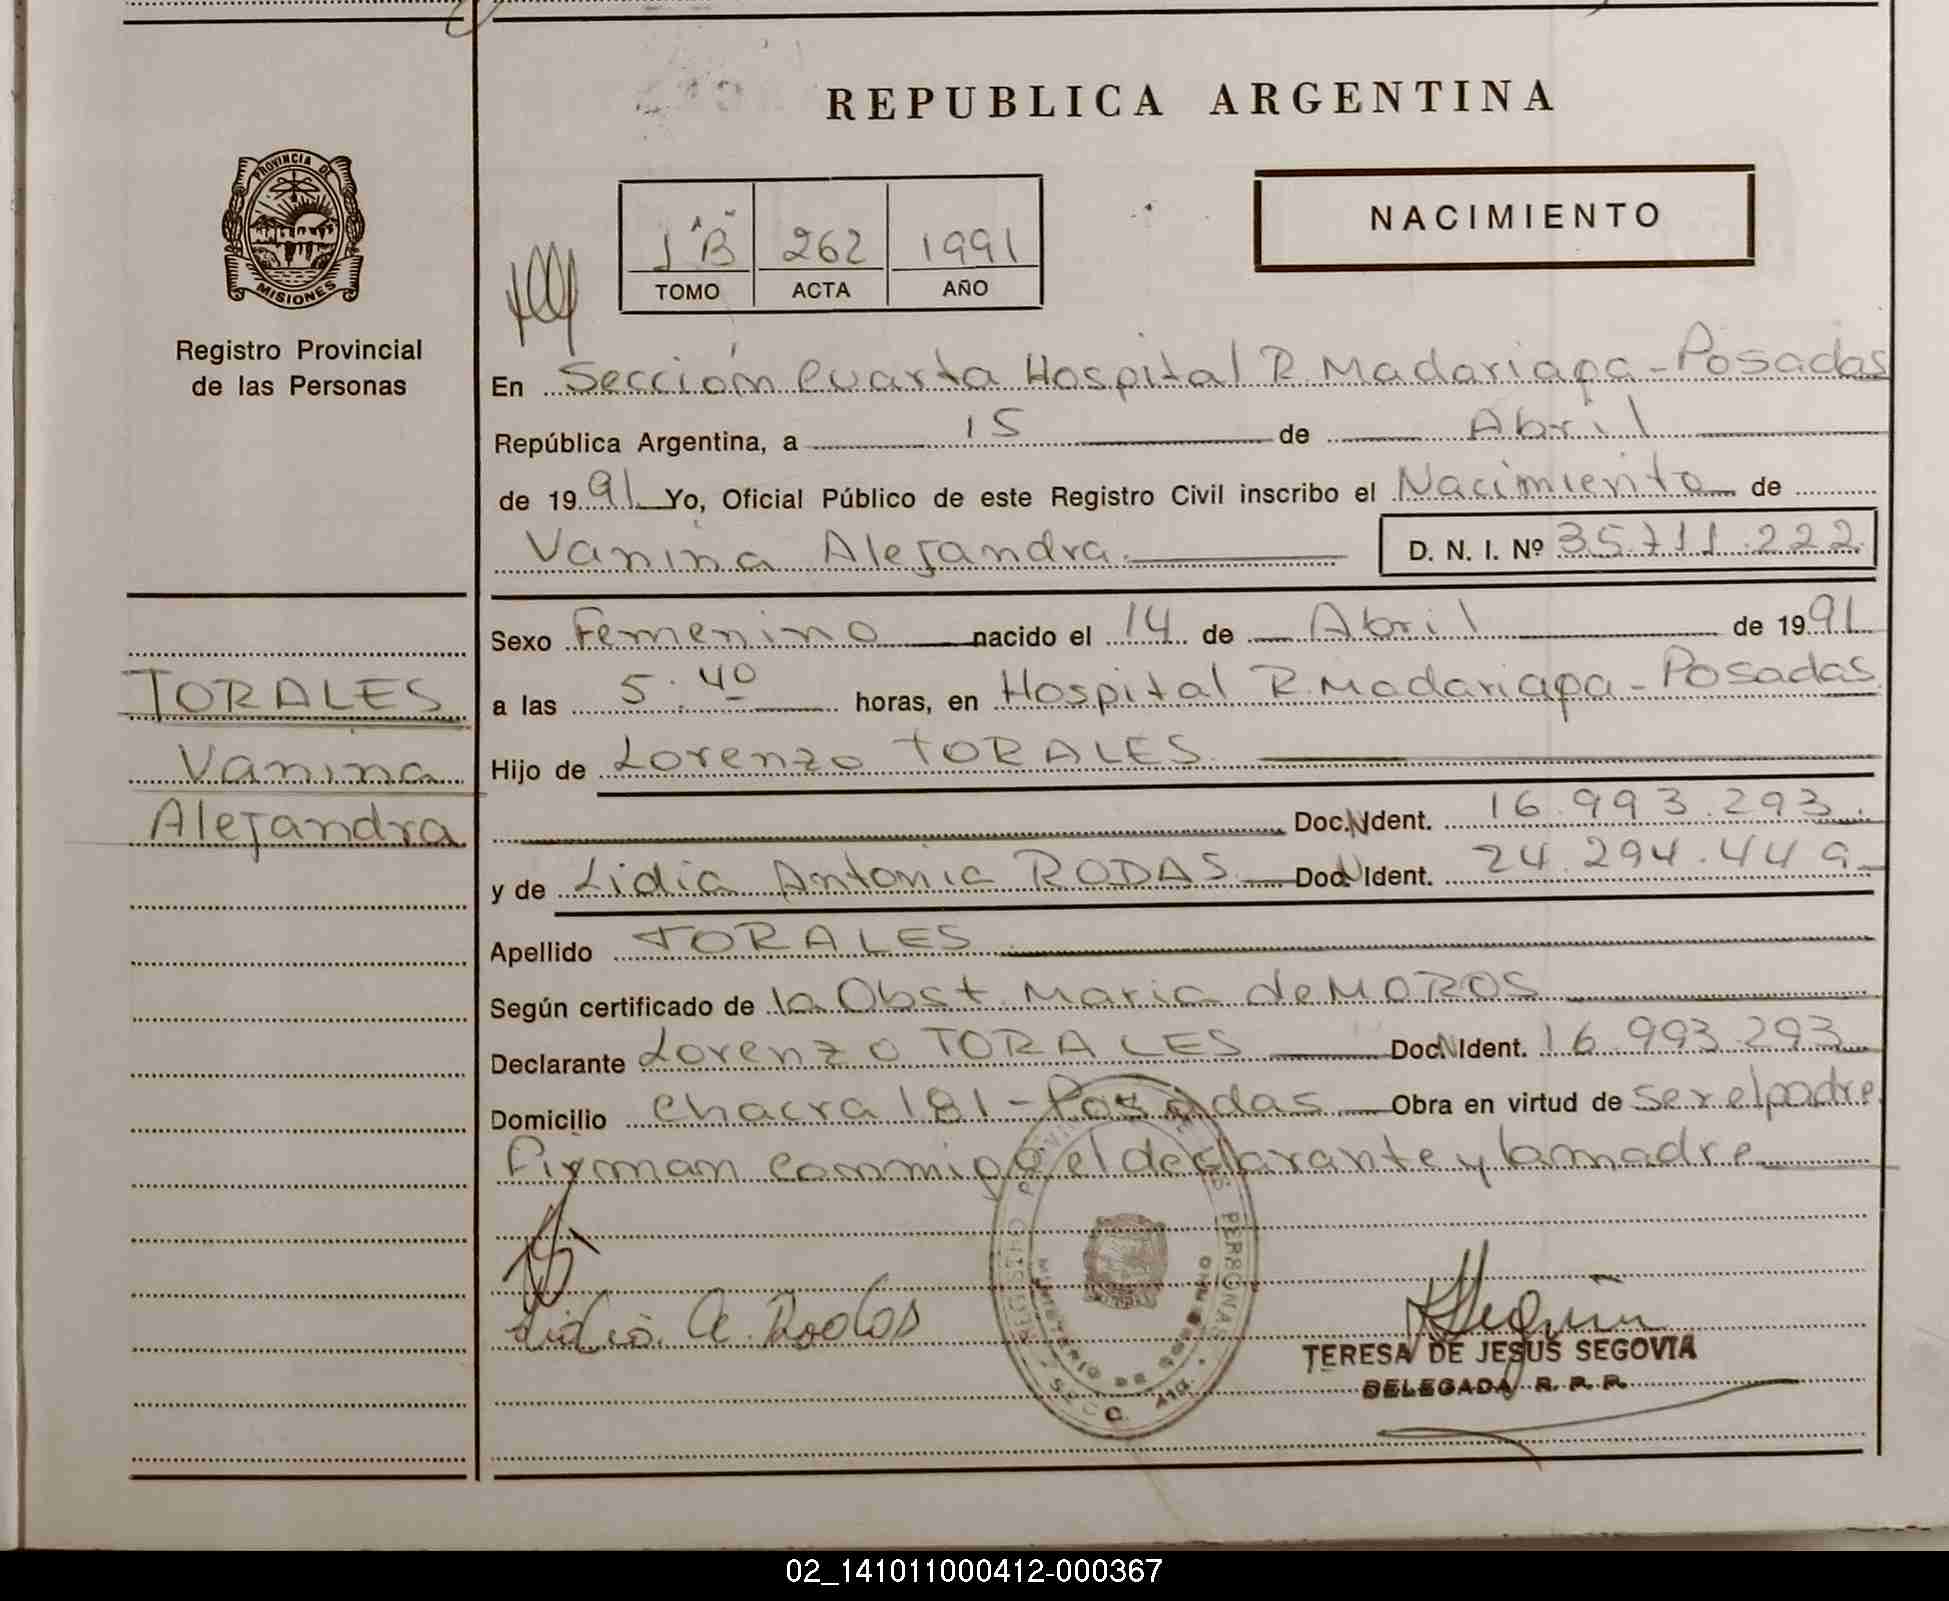 REPUBLICA ARGENTINA
NACIMIENTO
1 "B" 262 1991
TOMO ACTA AÑO
PROVINCIA DE
MISIONES
Registro Provincial
de las Personas
En Sección Cuarta Hospital R. Madariaga - Posadas
República Argentina, a 15 de Abril
de 1991 Yo, Oficial Público de este Registro Civil inscribo el Nacimiento de
Vanina Alejandra D. N. I. Nº 35.711.222
Sexo Femenino nacido el 14 de Abril de 1991
a las 5:40 horas, en Hospital R. Madariaga - Posadas
Hijo de Lorenzo TORALES
Doc. N Ident. 16.993.293
y de Lidia Antonia RODAS Doc. N Ident. 24.294.449
Apellido TORALES
Según certificado de la Obst. Maria de MOROS
Declarante Lorenzo TORALES Doc. N Ident. 16.993.293
Domicilio Chacra 181 - Posadas Obra en virtud de ser el padre
Firman conmigo el declarante y la madre
TORALES
Vanina
Alejandra
Lidia A. Rodas
PERSONAS
MINISTERIO DE GOBIERNO
TERESA DE JESUS SEGOVIA
DELEGADA R. P. P.
02_141011000412-000367